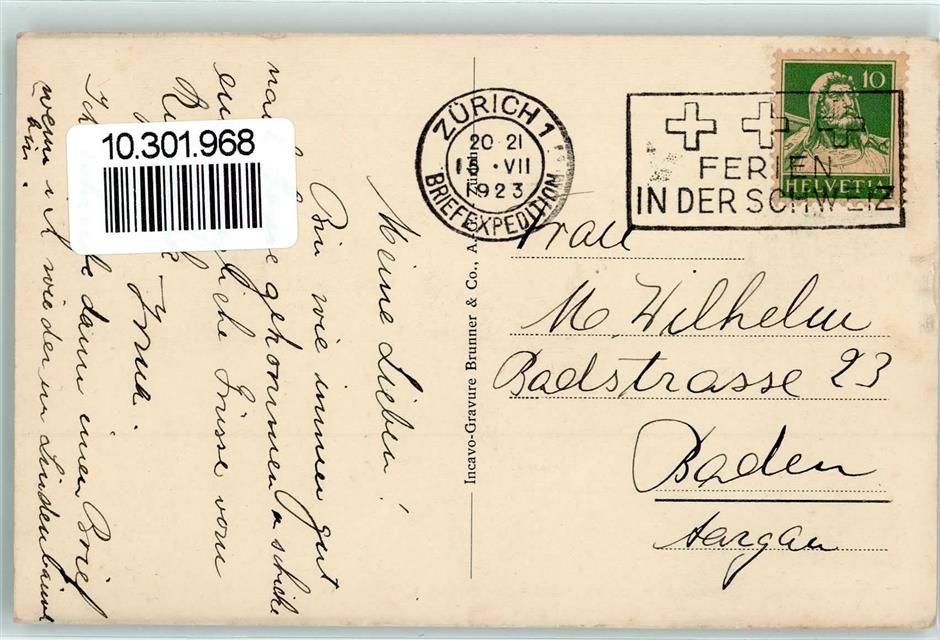 10.301.968
Meine Lieben!
Bin wie immer gut
gekommen & schicke
Grüsse vom
Irma.
dann einen Brief
wenn ich wieder in
bin.
Incavo-Gravure Brunner & Co., A.
Zürich
ZÜRICH 1
20-21
15. VII
1923
BRIEFEXPEDITION
FERIEN
IN DER SCHWEIZ
10
HELVETIA
Frau
M. Wilhelm
Badstrasse 23
Baden
Aargau